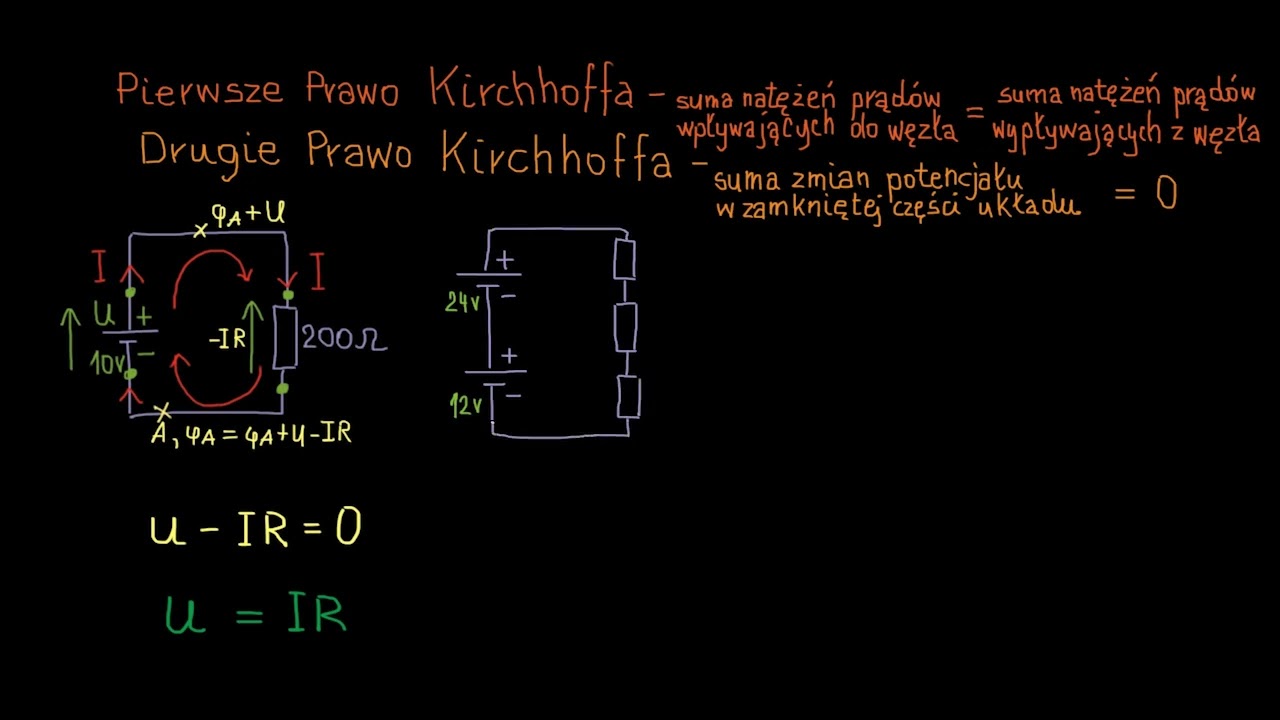 Pierwsze Prawo Kirchhoffa - suma natężeń prądów wpływających do węzła = suma natężeń prądów wypływających z węzła
Drugie Prawo Kirchhoffa - suma zmian potencjału w zamkniętej części układu = 0
φA+U
I
I
U +
-IR
200Ω
10V -
A, φA = φA+U-IR
+
24V -
+
12V -
U - IR = 0
U = IR